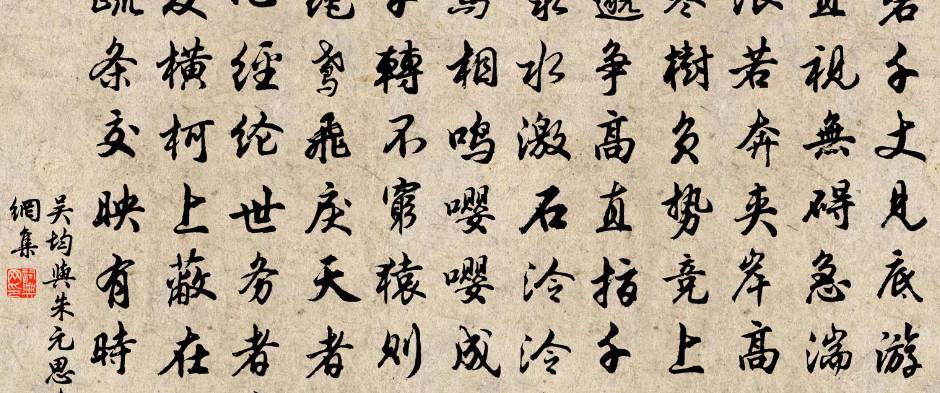 千丈见底游
直視無碍急湍
浪若奔夹岸高
寒樹负势竞上
邈争高直指千
泉水激石泠泠
相鸣嘤嘤成
千轉不窮猿则
鸢飛戾天者
經纶世务者
横柯上蔽在
疏条交映有時
吴均與朱元思
網集